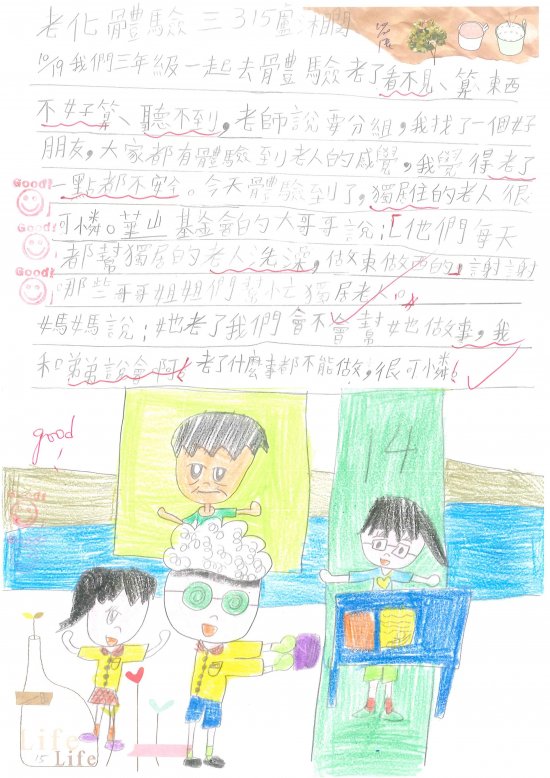 老化體驗 三 315盧湘閔
10/19我們三年級一起去體驗老了看不見、算東西
不好算、聽不到，老師說要分組，我找了一個好
朋友，大家都有體驗到老人的感覺，我覺得老了
一點都不安全。今天體驗到了，獨居住的老人很
可憐。菫山基金會的大哥哥說；「他們每天
都幫獨居的老人洗澡，做東做西的」謝謝
哪些哥哥姐姐們幫忙獨居老人。
媽媽說；她老了我們會不會幫她做事，我
和弟弟說會啊！老了什麼事都不能做，很可憐！
Good!
Good!
Good!
good!
14
Life
15 Life